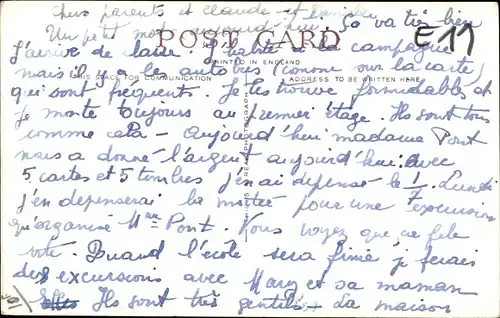 Chers parents et Claude et
Un p'tit mot aujourd'hui. Ça va très bien
POST CARD
E11
J'arrive de . J'habite à la campagne
PRINTED IN ENGLAND
mais il y a les autobus (comme sur la carte)
THIS SPACE FOR COMMUNICATION
ADDRESS TO BE WRITTEN HERE
qui sont fréquents. Je les trouve formidables et
je monte toujours au premier étage. Ils sont tous
comme cela - aujourd'hui madame Pont
nous a donné l'argent aujourd'hui avec
5 cartes et 5 timbres j'en ai dépensé le 1/7. Lundi
j'en dépenserai la moitié pour une excursion
qu'organise Mme Pont. Vous voyez que ça file
vite. Quand l'école sera finie je ferai
des excursions avec Mary et sa maman
Ils sont très gentils - La maison